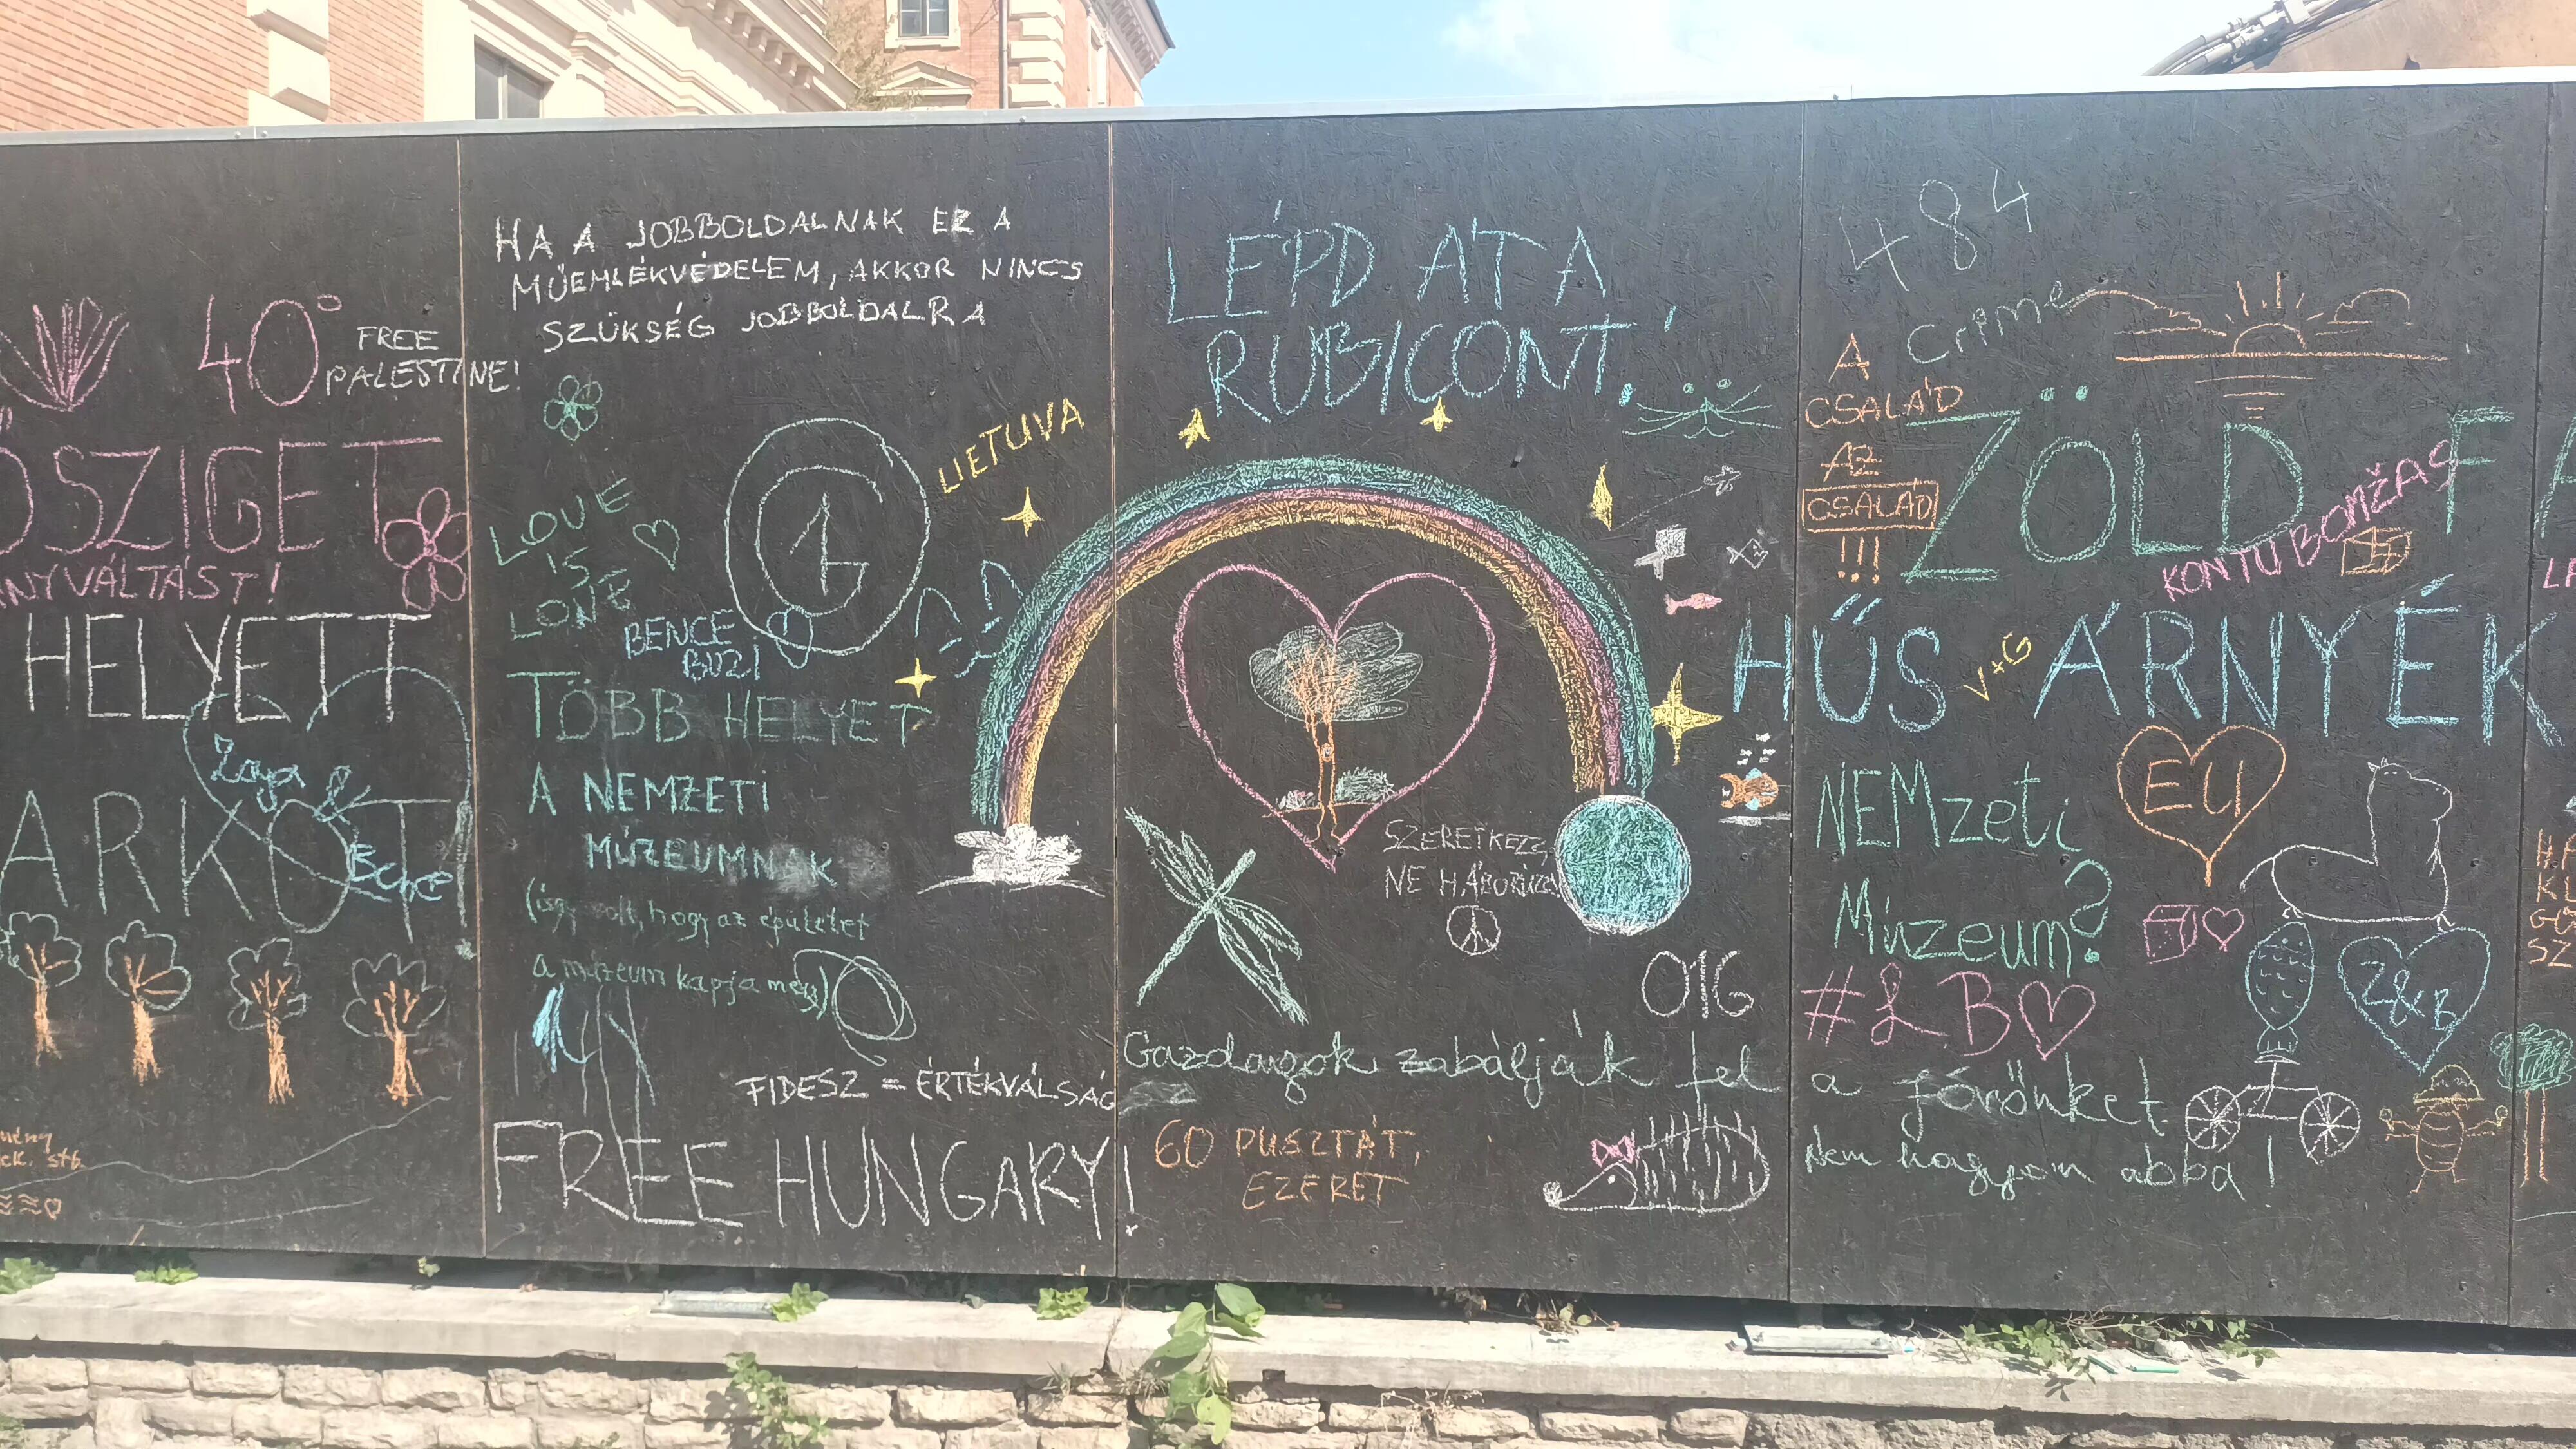 40°
FREE
PALESTINE!
ŐSZIGET
NYVÁLTÁST!
HELYETT
Zoya &
Bence
ARKOT!
stb.
HA A JOBBOLDALNAK EZ A
MŰEMLÉKVÉDELEM, AKKOR NINCS
SZÜKSÉG JOBBOLDALRA
LIETUVA
LOVE
IS
LOVE
BENCE
BUZI
TÖBB HELYET
A NEMZETI
MÚZEUMNAK
(úgy volt, hogy az épületet
a múzeum kapja meg)
FIDESZ = ÉRTÉKVÁLSÁG
FREE HUNGARY!
LÉPD ÁT A
RUBICONT!
SZERETKEZZ
NE HÁBORÚZZ
O1G
Gazdagok zabálják fel a jövőnket
Nem hagyom abba!
60 PUSZTÁT,
EZERET
484
Crime
A
CSALÁD
AZ
CSALÁD
!!!
ZÖLD FA
KONTU BOMŽAS
HŰS ÁRNYÉK
V+G
NEMzeti
Múzeum?
EU
#LB
Z&B